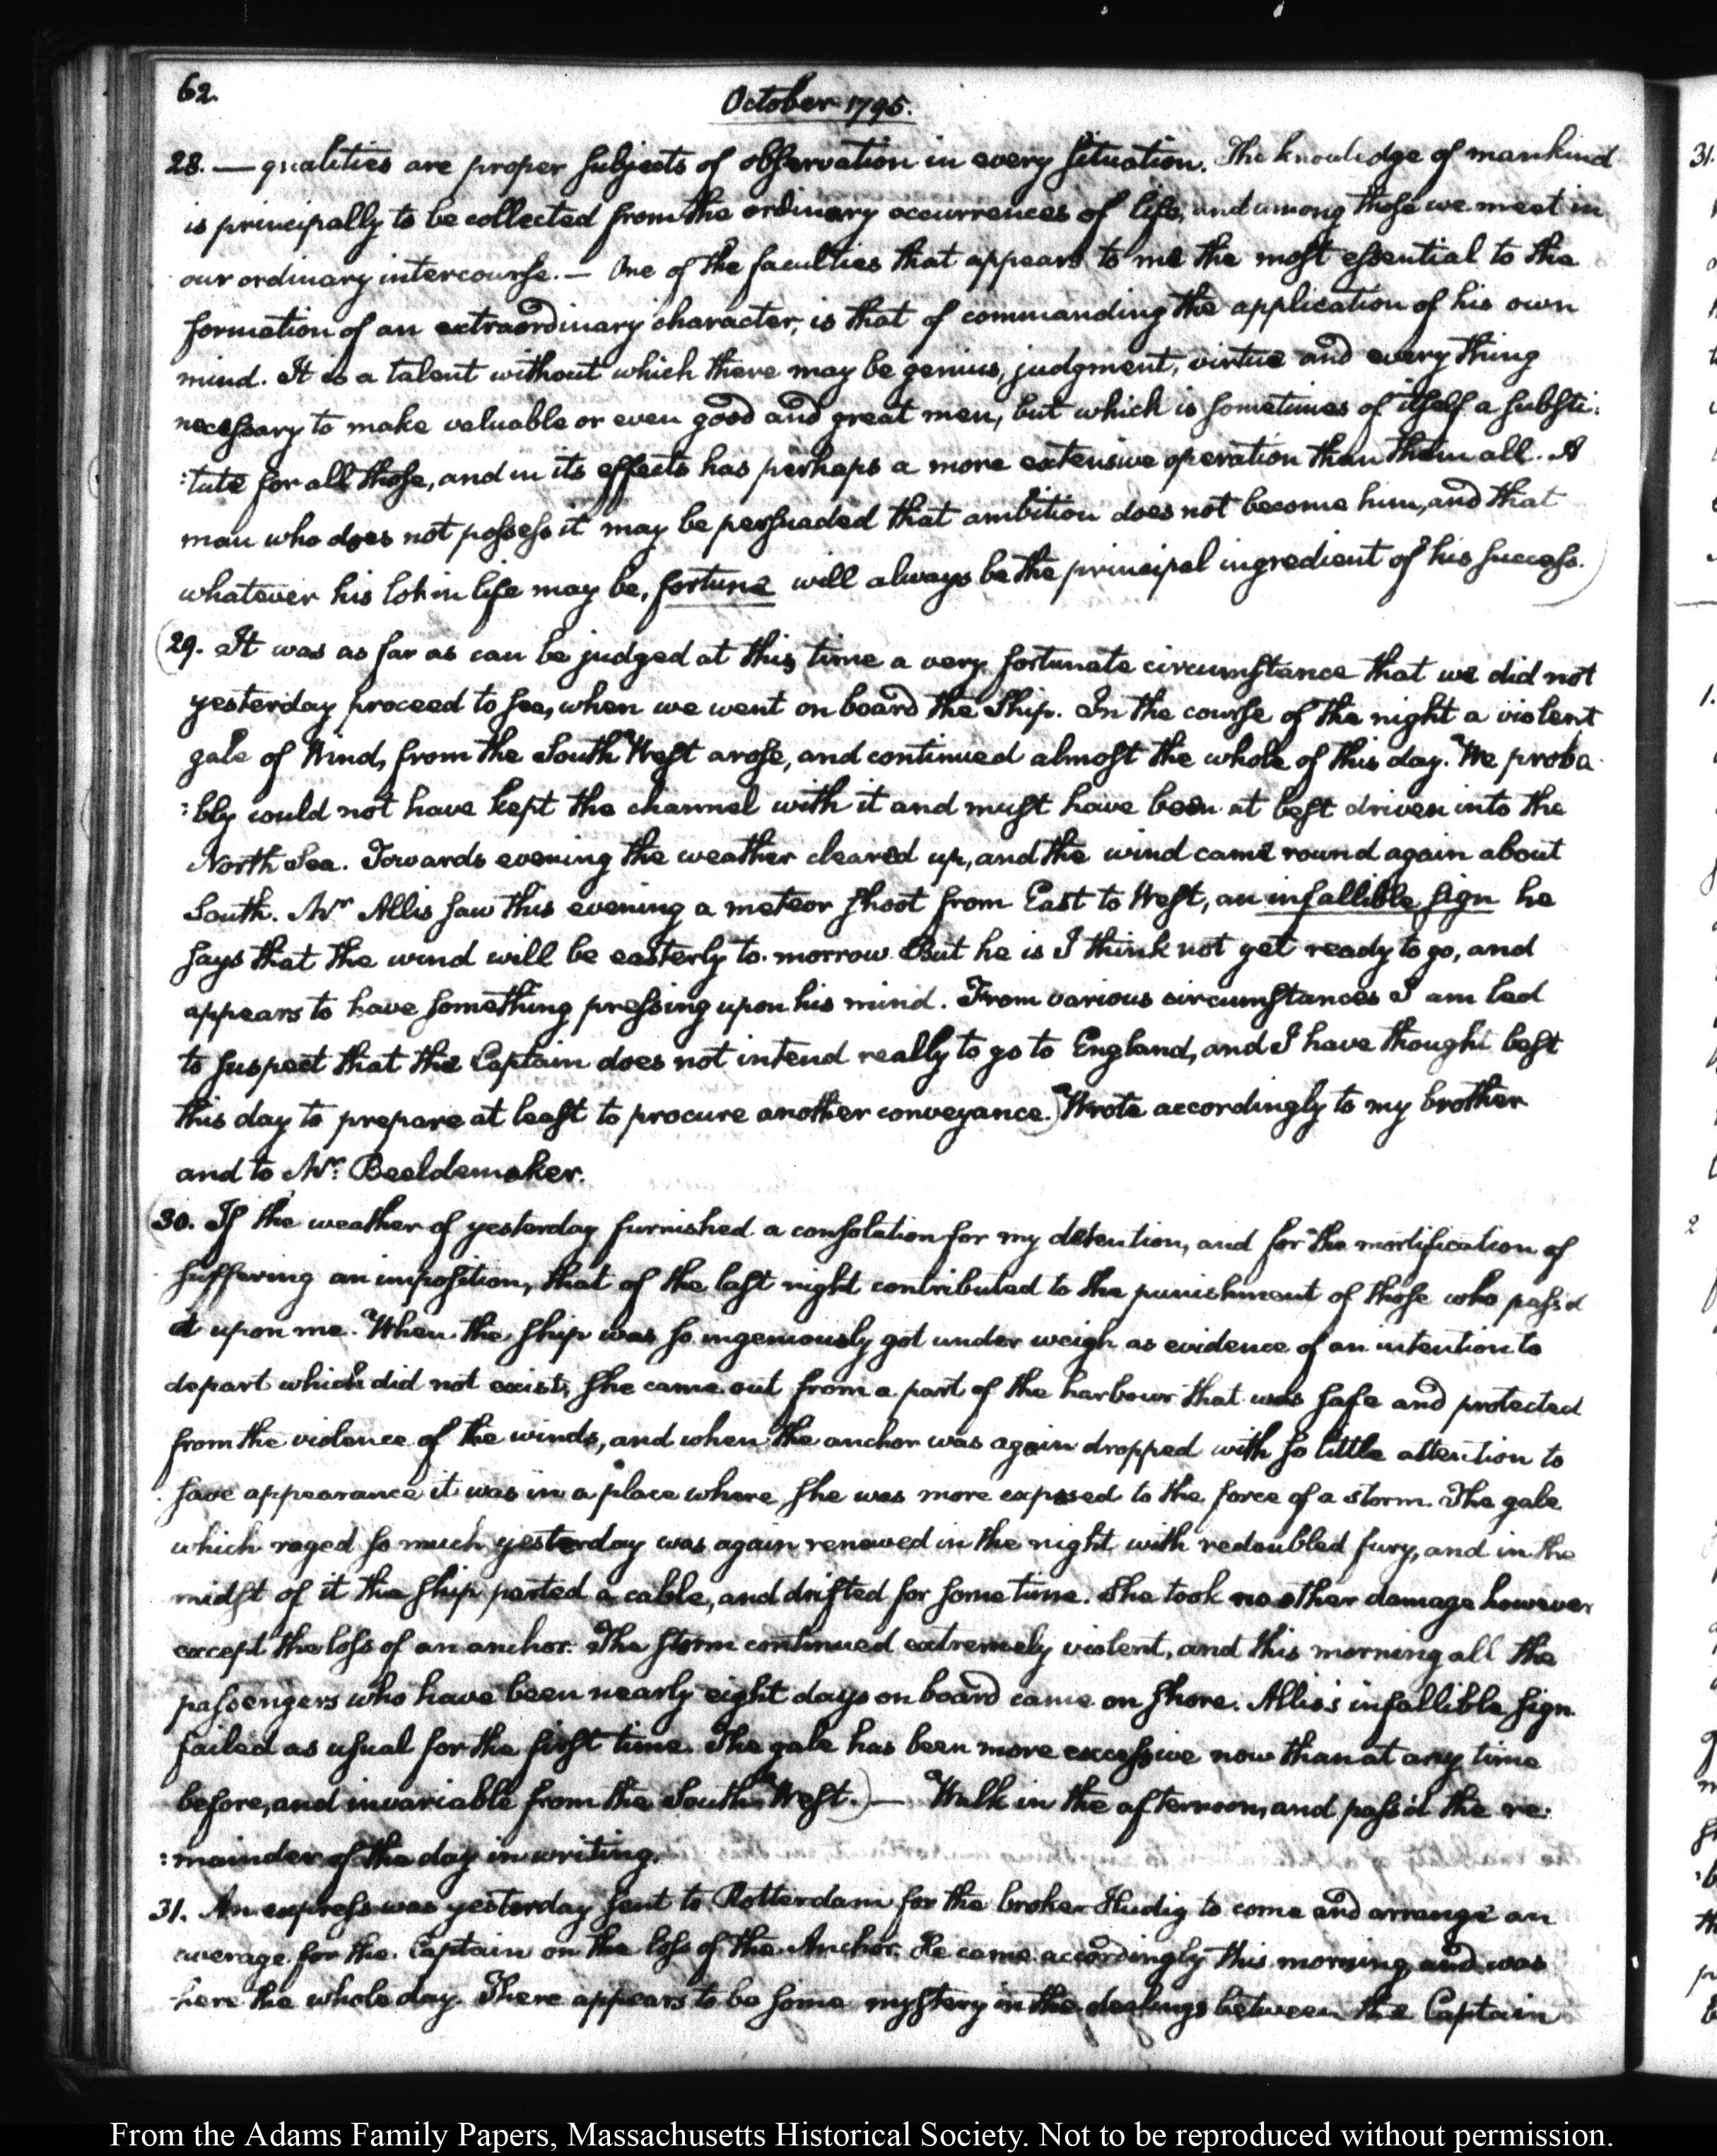 62.
October 1795.
28. — qualities are proper subjects of observation in every situation. The knowledge of mankind
is principally to be collected from the ordinary occurrences of life, and among those we meet in
our ordinary intercourse. — One of the faculties that appears to me the most essential to the
formation of an extraordinary character, is that of commanding the application of his own
mind. It is a talent without which there may be genius, judgment, virtue and every thing
necessary to make valuable or even good and great men, but which is sometimes of itself a substi:
:tute for all those, and in its effects has perhaps a more extensive operation than them all. A
man who does not possess it may be persuaded that ambition does not become him, and that
whatever his lot in life may be, fortune will always be the principal ingredient of his success.)
(29. It was as far as can be judged at this time a very fortunate circumstance that we did not
yesterday proceed to sea, when we went on board the Ship. In the course of the night a violent
gale of Wind, from the South West arose, and continued almost the whole of this day. We proba:
:bly could not have kept the channel with it and must have been at best driven into the
North Sea. Towards evening the weather cleared up, and the wind came round again about
South. Mr. Allis saw this evening a meteor shoot from East to West, an infallible sign he
says that the wind will be easterly to-morrow. But he is I think not yet ready to go, and
appears to have something pressing upon his mind. From various circumstances I am led
to suspect that the Captain does not intend really to go to England, and I have thought best
this day to prepare at least to procure another conveyance.) Wrote accordingly to my brother
and to Mr. Beeldemaker.
(30. If the weather of yesterday furnished a consolation for my detention, and for the mortification of
suffering an imposition, that of the last night contributed to the punishment of those who pass'd
it upon me. When the ship was so ingeniously got under weigh as evidence of an intention to
depart which did not exist, she came out from a part of the harbour that was safe and protected
from the violence of the winds, and when the anchor was again dropped with so little attention to
save appearance it was in a place where she was more exposed to the force of a storm. The gale
which raged so much yesterday was again renewed in the night with redoubled fury, and in the
midst of it the ship parted a cable, and drifted for some time. She took no other damage however
except the loss of an anchor. The storm continued extremely violent, and this morning all the
passengers who have been nearly eight days on board came on shore. Allis's infallible sign
failed as usual for the first time. The gale has been more excessive now than at any time
before, and invariable from the South West.) — Walk in the afternoon, and pass'd the re:
:mainder of the day in writing.
31. An express was yesterday sent to Rotterdam for the broker Hudig to come and arrange an
average for the Captain on the loss of the Anchor. He came accordingly this morning, and was
here the whole day. There appears to be some mystery in the dealings between the Captain
From the Adams Family Papers, Massachusetts Historical Society. Not to be reproduced without permission.